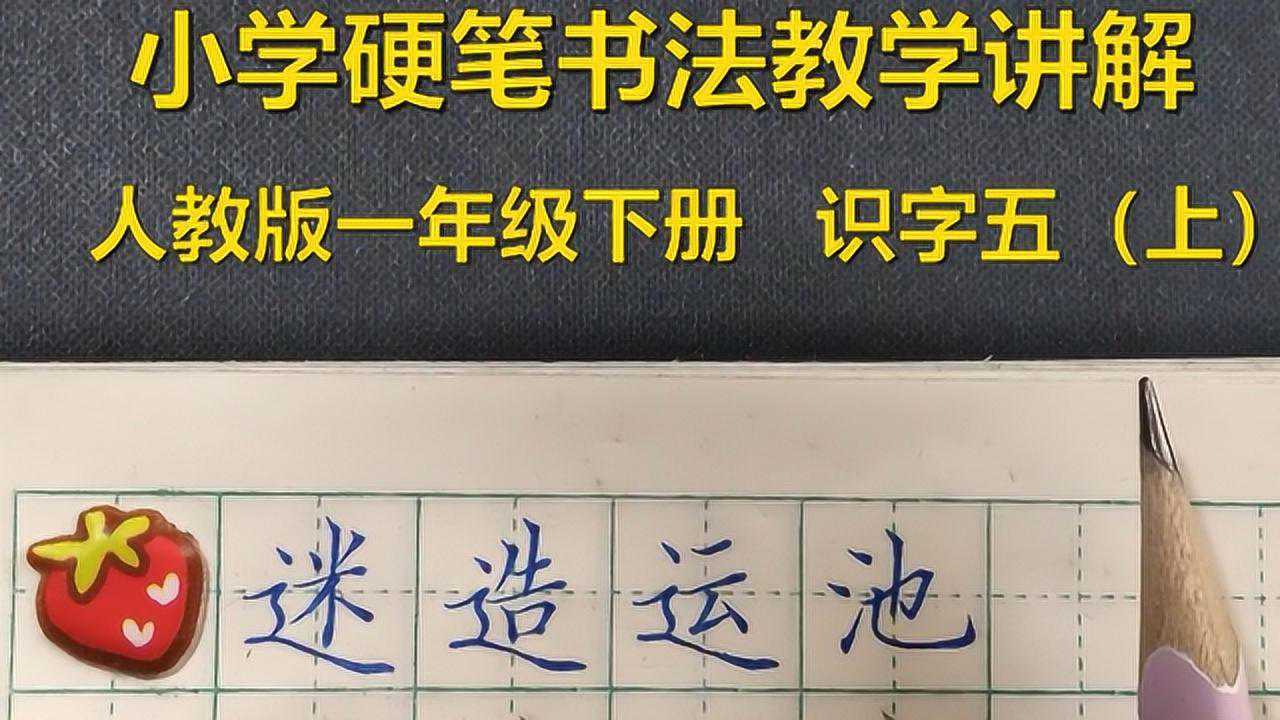 小学硬笔书法教学讲解
人教版一年级下册 识字五（上）
迷造运池